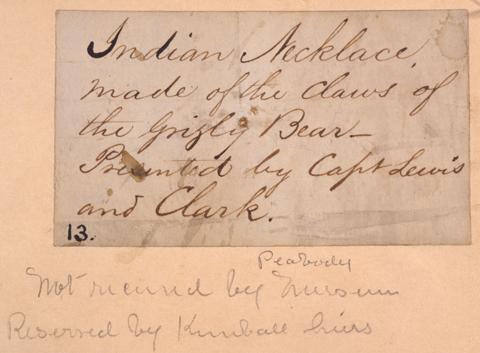 Indian Necklace,
made of the claws of
the Grizly Bear_
Presented by Capt Lewis
and Clark.
13.
Peabody
Not received by Museum
Reserved by Kimball heirs